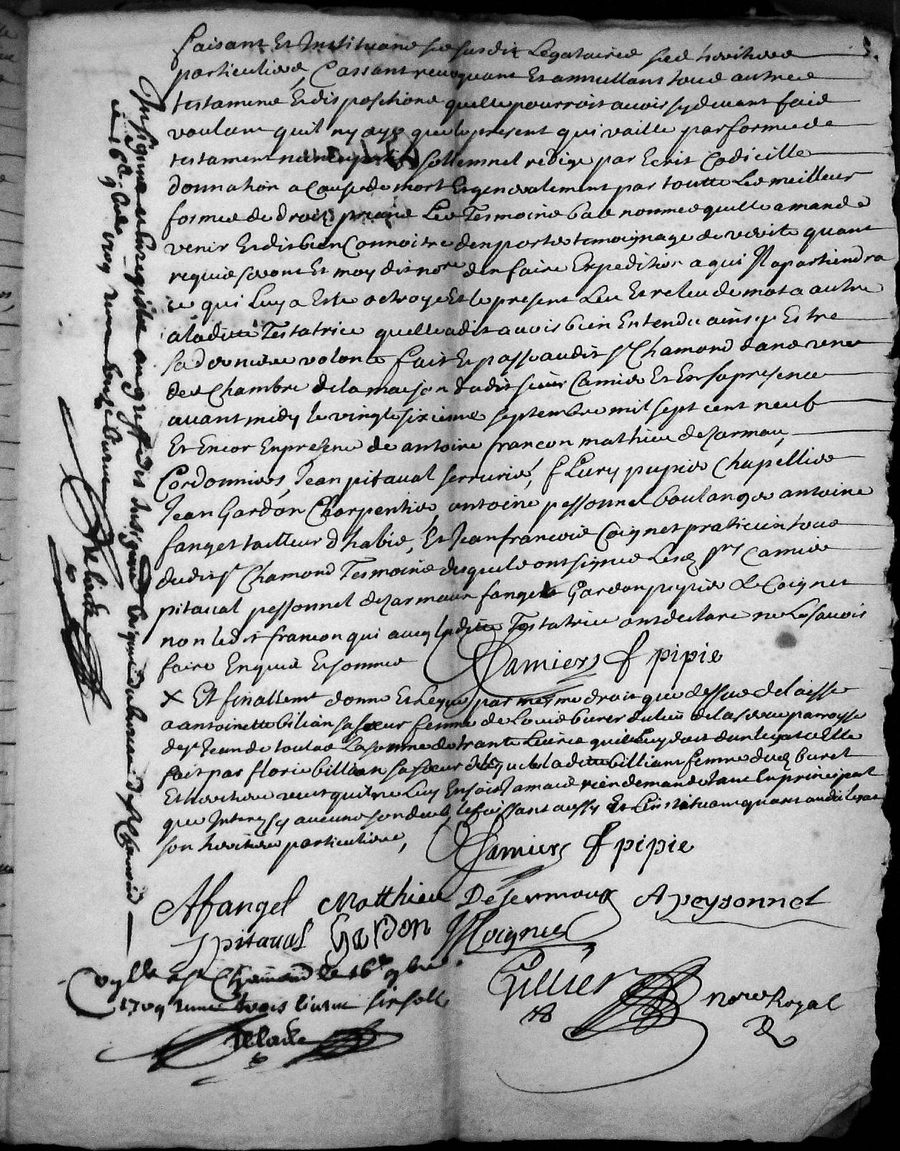 faisant Et Instituant ses susdit Legataires ses heritiers
particuliers, Cassant revoquant Et annullant tous autres
testamens Et dispositions quelle pourroit avoir sy devant fait
voulant quil ny aye que le present qui vaille par forme de
testament sollemnel redigé par Ecrit Codicille
donnation a Cause de mort Et generalement par toutte Les meilleur
formes de droit priant Les Tesmoins bas nommes quelle a mandé
venir Et dis bien Connoitre den porter temoignage de verité quant
requis seront Et moy dit no.re den faire Expedition a qui Il apartiendra
ce qui Luy a Esté octroyé Et le present Leu Et releu de mot a autre
a ladite Testatrice quelle a dit avoir bien Entendu ainsy Estre
sa derniere volonté fait Et passé audit St Chamond dans une
des Chambre de la maison dudit sieur Camier Et En sa presence
avant midy le vingt sixieme septembre mil sept cent neuf
Et Encor En presence de antoine francon mathieu desarmau
Cordonniers, Jean pitaval serrurier, fleury pupier Chapellier
Jean Gardon Charpentier antoine pessonnel boulanger antoine
fanget tailleur d'habis, Et Jean francois Coignet praticien tous
dudit St Chamond Tesmoins desquels ont signé Led Sr Camier
pitaval pessonnel desarmaux fanget Gardon pupier Et Coignet
non led sr francon qui avec ladite Testatrice ont declaré ne le savoir
faire Enquis Et sommés Camiers f pipie
X Et finallement donne Et Legue par mesme droit que dessus delaisse
a antoinette billian sa sœur femme de Louis buret du lieu de la paroisse
de St Jean de toulas La somme de trante Livres quil Luy doit dun legat Elle
fait par florie billian sa sœur de laquelle ladite billiant femme dud buret
Et heritiere veut quil ne Luy En soit jamais rien demandé tant En principal
que Interests aucune son deceds Le faissant aussy Et Instituant quant audit legat
son heritiere particuliere, Camiers f pipie
Afanget Matthieu Désermoux Apeysonnel
Jpitaval Gardon Coignet
Conllé a St Chamond le 16e 9bre
1709 trois livres six sols Gillier no.re Royal
Delaite
Insigné et Enregistré au greffe des Insignua.ons du bureau de St Chamond
le 16e 9bre 1709 reçu
Delaite